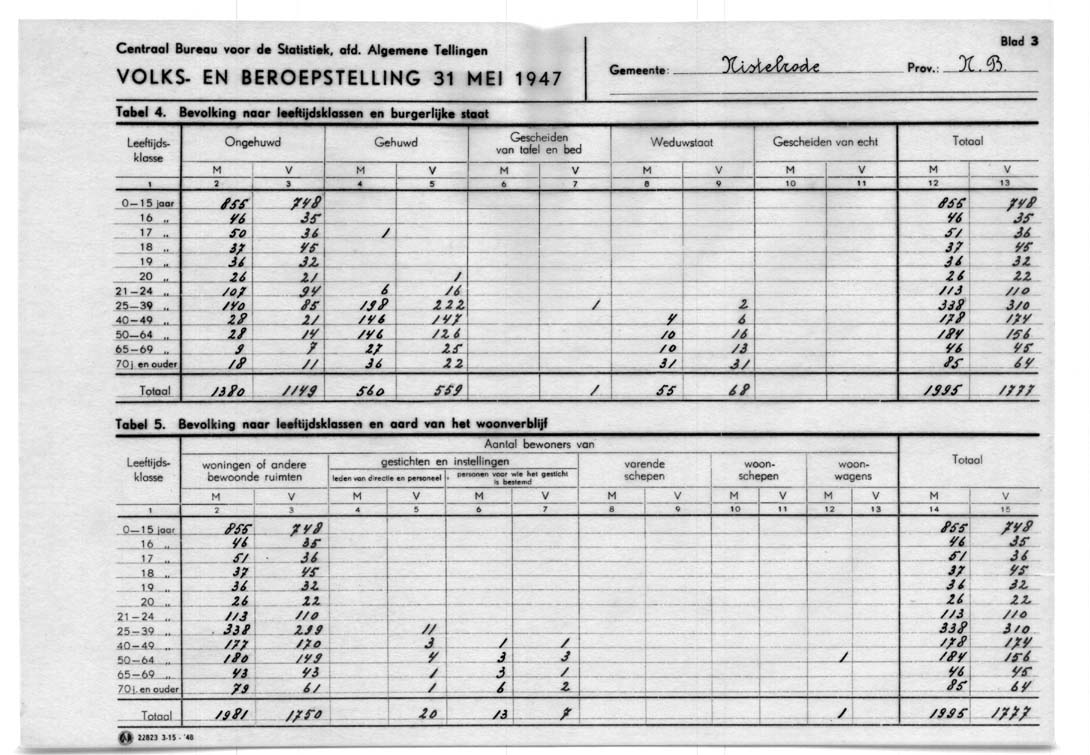 Centraal Bureau voor de Statistiek, afd. Algemene Tellingen
VOLKS- EN BEROEPSTELLING 31 MEI 1947
Gemeente: Nistelrode Prov.: N.B.
Blad 3
Tabel 4. Bevolking naar leeftijdsklassen en burgerlijke staat
Leeftijds-klasse Ongehuwd Gehuwd Gescheiden van tafel en bed Weduwstaat Gescheiden van echt Totaal
M V M V M V M V M V M V
1 2 3 4 5 6 7 8 9 10 11 12 13
0—15 jaar 855 748 855 748
16 „ 46 35 46 35
17 „ 50 36 1 51 36
18 „ 37 45 37 45
19 „ 36 32 36 32
20 „ 26 21 1 26 22
21—24 „ 107 94 6 16 113 110
25—39 „ 140 85 198 222 1 2 338 310
40—49 „ 28 21 146 147 4 6 178 174
50—64 „ 28 14 146 126 10 16 184 156
65—69 „ 9 7 27 25 10 13 46 45
70 j. en ouder 18 11 36 22 31 31 85 64
Totaal 1380 1149 560 559 1 55 68 1995 1777
Tabel 5. Bevolking naar leeftijdsklassen en aard van het woonverblijf
Aantal bewoners van
Leeftijds-klasse woningen of andere bewoonde ruimten gestichten en instellingen varende schepen woon-schepen woon-wagens Totaal
leden van directie en personeel personen voor wie het gesticht is bestemd
M V M V M V M V M V M V M V
1 2 3 4 5 6 7 8 9 10 11 12 13 14 15
0—15 jaar 855 748 855 748
16 „ 46 35 46 35
17 „ 51 36 51 36
18 „ 37 45 37 45
19 „ 36 32 36 32
20 „ 26 22 26 22
21—24 „ 113 110 113 110
25—39 „ 338 299 11 338 310
40—49 „ 177 170 3 1 1 178 174
50—64 „ 180 149 4 3 3 1 184 156
65—69 „ 43 43 1 3 1 46 45
70 j. en ouder 79 61 1 6 2 85 64
Totaal 1981 1750 20 13 7 1 1995 1777
22823 3-15 - '48